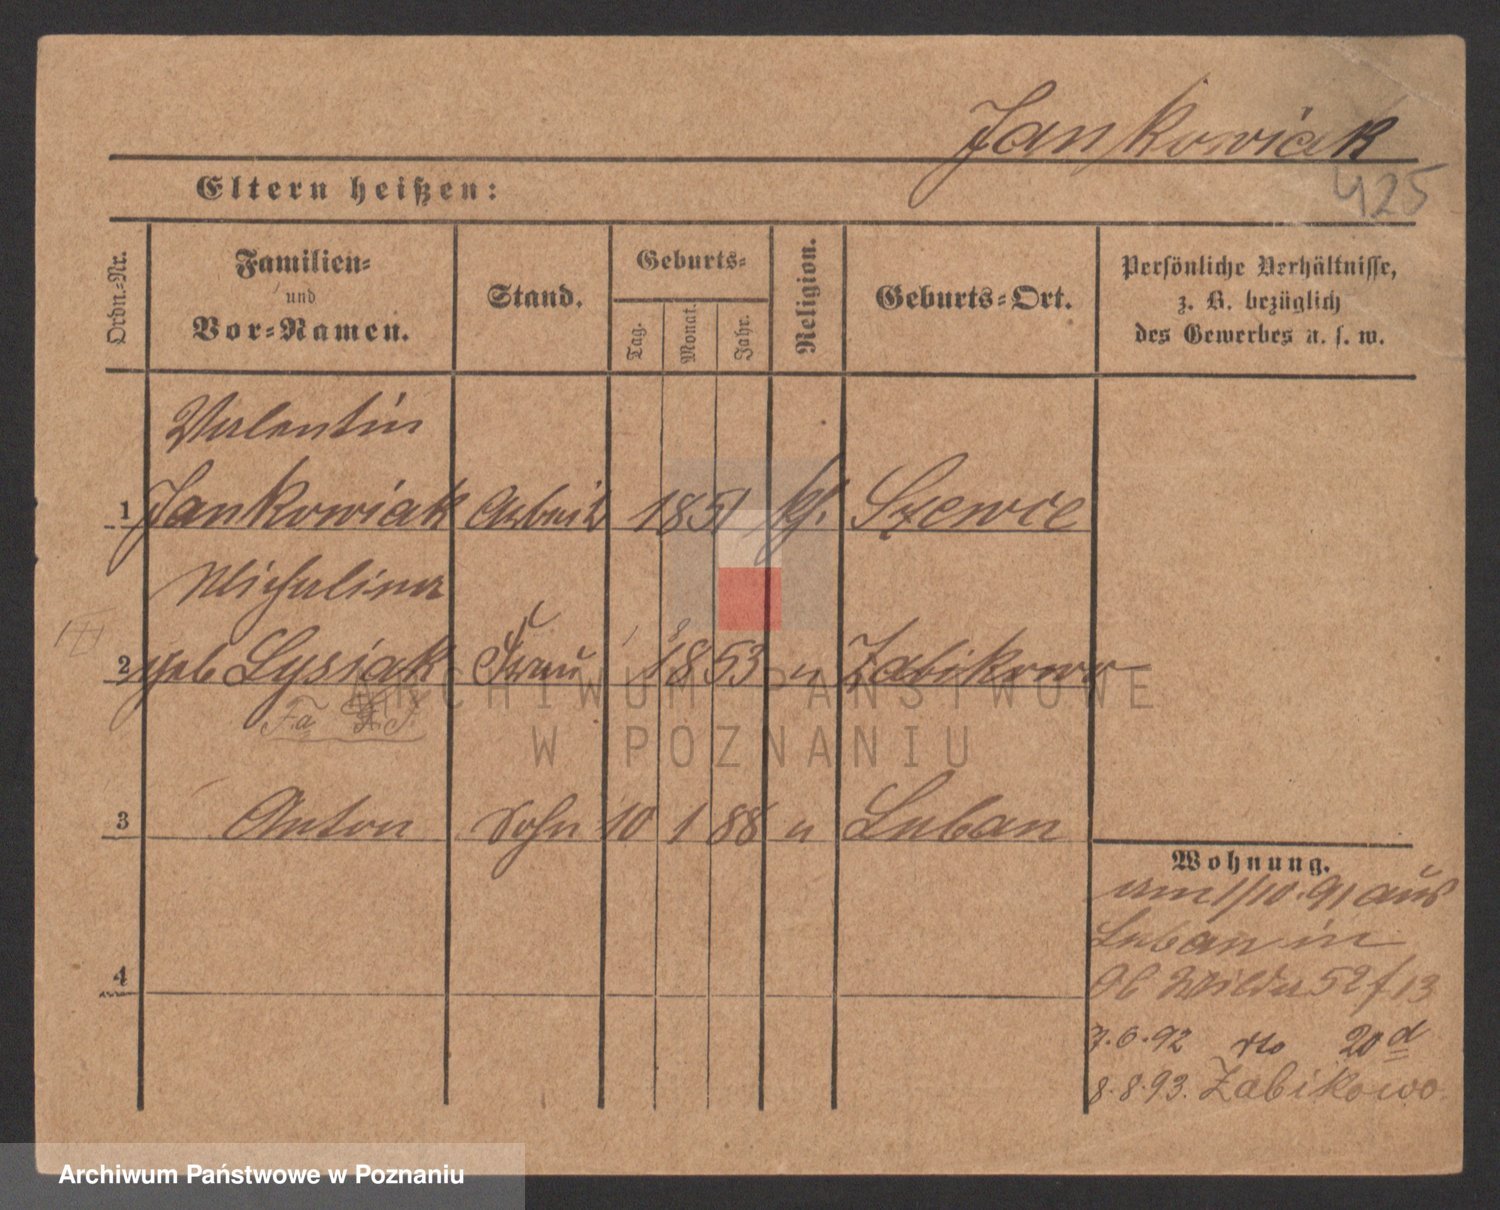 Jankowiak
425
Eltern heißen:
Ordn.-Nr.
Familien-
und
Vor-Namen.
Stand.
Geburts-
Tag.
Monat.
Jahr.
Religion.
Geburts-Ort.
Persönliche Verhältnisse,
z. B. bezüglich
des Gewerbes u. s. w.
Valentin
1 Jankowiak Arbeit 1851 kf. Szewce
Michalina
2 geb Lysiak Frau 1853 " Zabikowo
3 Anton Sohn 10 1 88 " Luban
4
Wohnung.
am 1/10.91 aus
Luban in
Ob Wilda 52 f 13
7.6.92 dto 20 d
8.8.93. Zabikowo
ARCHIWUM PAŃSTWOWE
W POZNANIU
Archiwum Państwowe w Poznaniu